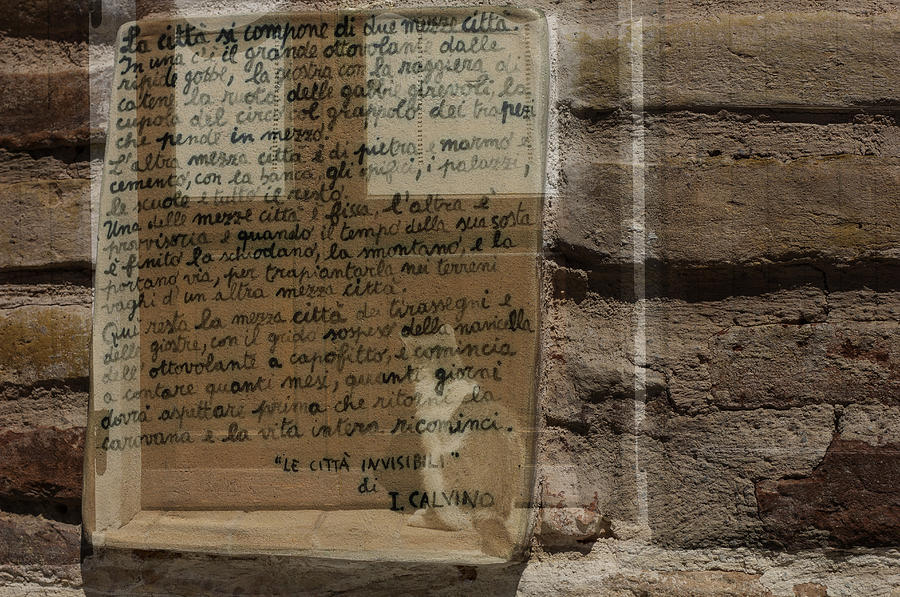 La città si compone di due mezze città.
In una c'è il grande ottovolante dalle
ripide gobbe, la giostra con la raggiera di
catene, la ruota delle gabbie girevoli, la
cupola del circo col grappolo dei trapezi
che pende in mezzo.
L'altra mezza città è di pietra e marmo e
cemento, con la banca, gli opifici, i palazzi,
le scuole e tutto il resto.
Una delle mezze città è fissa, l'altra è
provvisoria e quando il tempo della sua sosta
è finito la schiodano, la smontano, e la
portano via, per trapiantarla nei terreni
vaghi d'un altra mezza città.
Qui resta la mezza città dei tirassegni e
delle giostre, con il grido sospeso dalla navicella
dell'ottovolante a capofitto, e comincia
a contare quanti mesi, quanti giorni
dovrà aspettare prima che ritorni la
carovana e la vita intera ricominci.
"LE CITTÀ INVISIBILI"
di
I. CALVINO